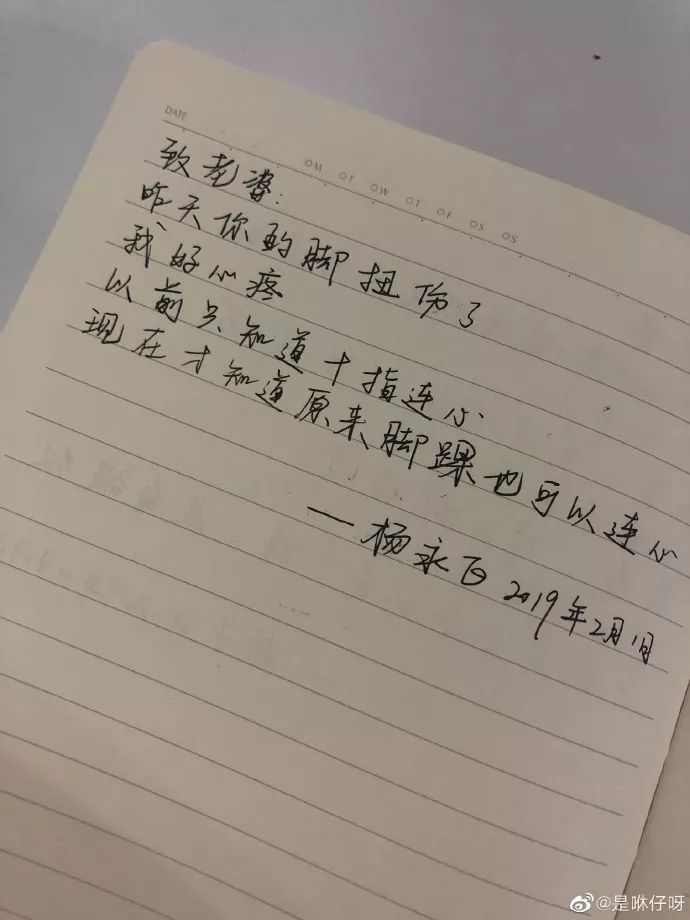 DATE
MO TO WO TO FO SO SO
致老婆：
昨天你的脚扭伤了
我好心疼
以前只知道十指连心
现在才知道原来脚踝也可以连心
——杨永
2019年2月1日
@是咻仔呀